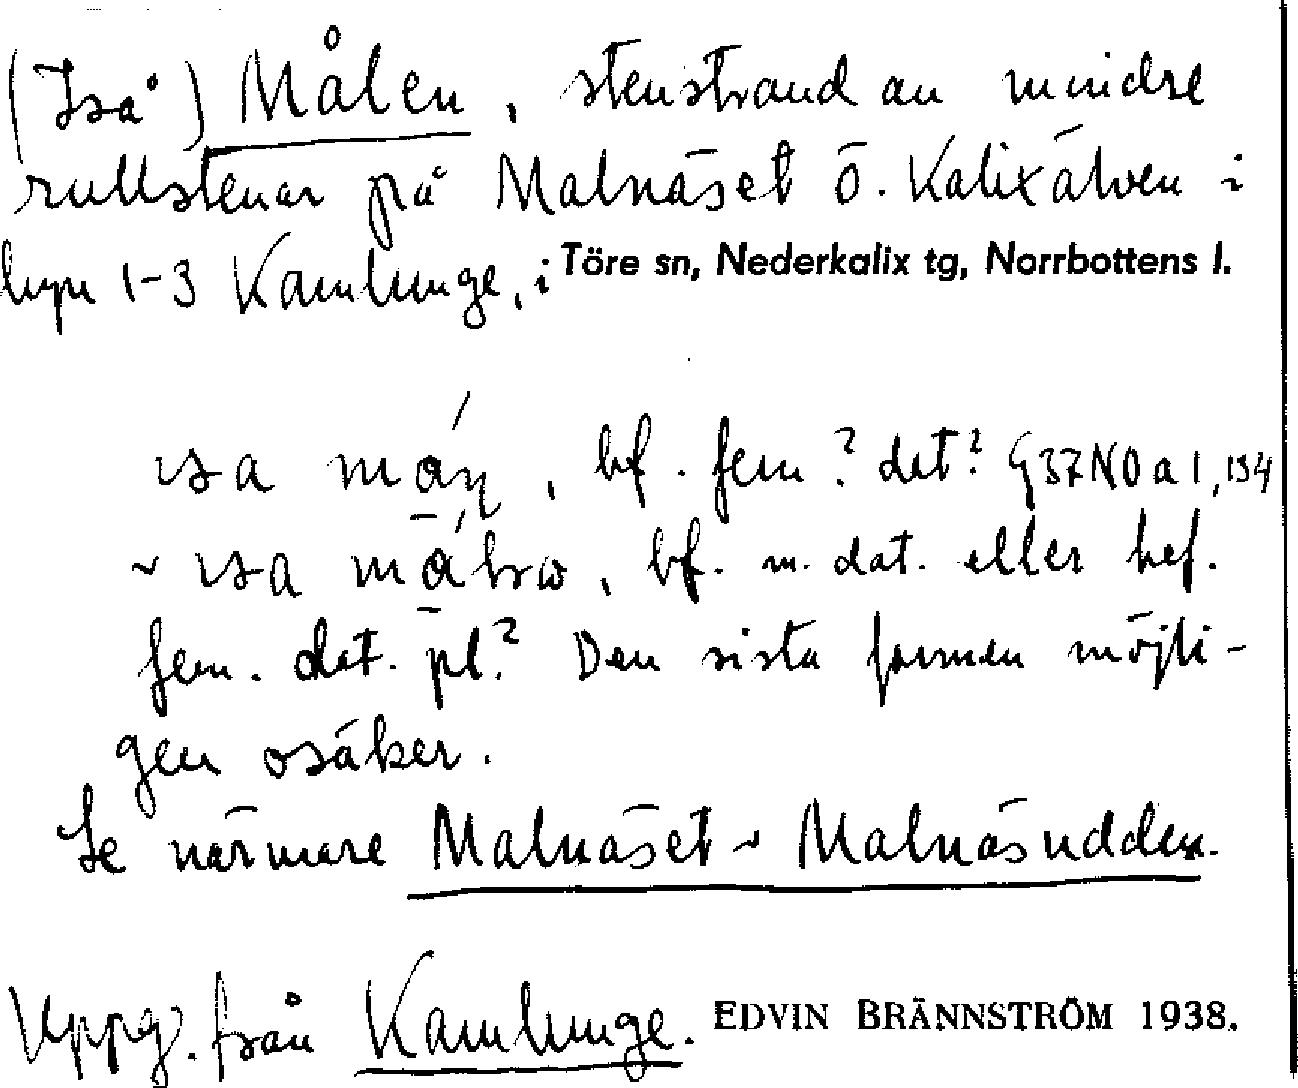 (Iså) Målen, stenstrand av mindre
rullstenar på Malnäset ö. Kalixälven i
byn 1-3 Kamlunge, i Töre sn, Nederkalix tg, Norrbottens l.
ɩsa bf. fem? dat? G37NOa1, 154
~ ɩsa bf. m. dat. eller bef.
fem. dat. pl? Den sista formen möjli-
gen osäker.
Se närmare Malnäset ~ Malnäsudden.
Uppg. från Kamlunge. EDVIN BRÄNNSTRÖM 1938.